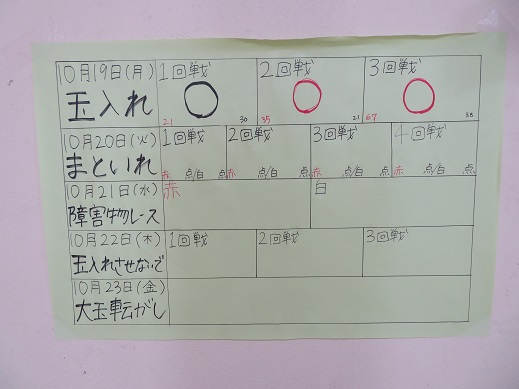 10月19日(月) 1回戦 2回戦 3回戦
玉入れ ○ ○ ○
21 30 35 21 67 38
10月20日(火) 1回戦 2回戦 3回戦 4回戦
まといれ 赤 点/白 点 赤 点/白 点 赤 点/白 点 赤 点/白 点
10月21日(水) 赤 白
障害物レース
10月22日(木) 1回戦 2回戦 3回戦
玉入れさせないで
10月23日(金)
大玉転がし